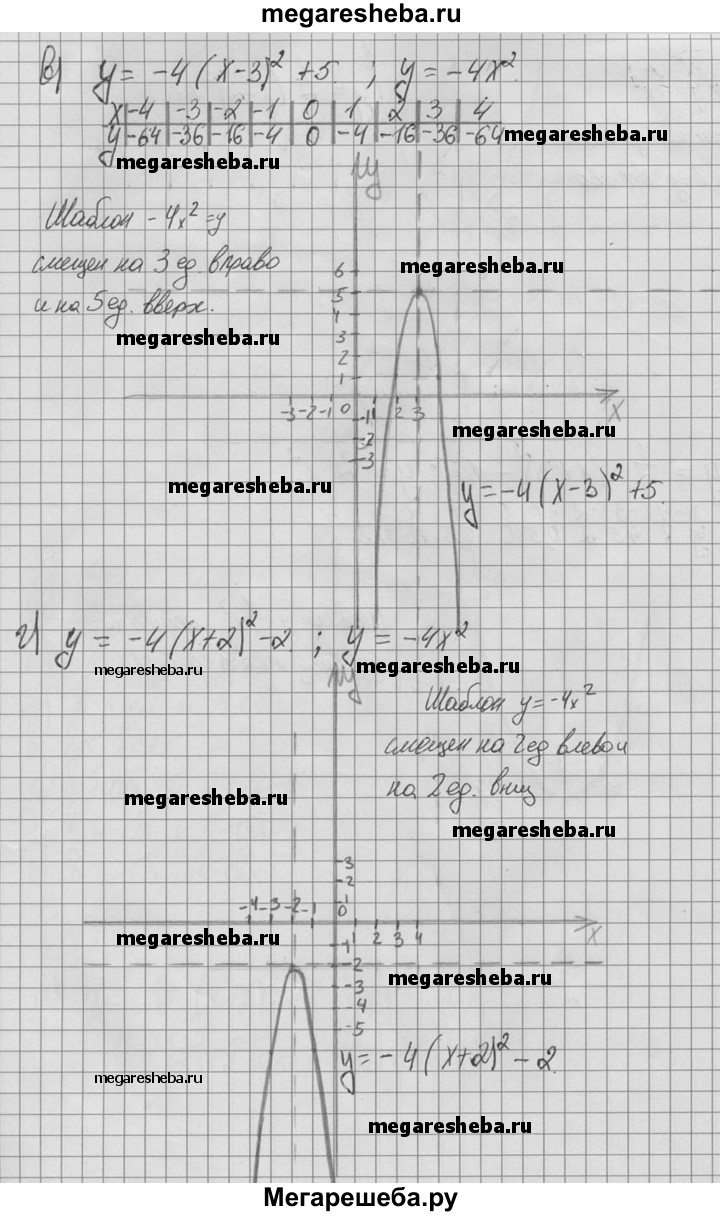 megaresheba.ru
в) y = -4(x-3)² +5 ; y = -4x².
x -4 | -3 | -2 | -1 | 0 | 1 | 2 | 3 | 4
y -64 | -36 | -16 | -4 | 0 | -4 | -16 | -36 | -64 megaresheba.ru
megaresheba.ru
y
Шаблон -4x² = y
смещен на 3 ед. вправо
и на 5 ед. вверх.
megaresheba.ru
megaresheba.ru
6
5
4
3
2
1
-3 -2 -1 0 1 2 3 x
-1
-2
-3
megaresheba.ru
megaresheba.ru
y = -4(x-3)² +5.
г) y = -4(x+2)² -2. ; y = -4x²
megaresheba.ru
megaresheba.ru
y
Шаблон y = -4x²
смещен на 2 ед влево и
на 2 ед. вниз
megaresheba.ru
megaresheba.ru
3
2
1
-4 -3 -2 -1 0
1 2 3 4 x
megaresheba.ru
-1
-2
-3
-4
-5
megaresheba.ru
y = -4(x+2)² - 2.
megaresheba.ru
megaresheba.ru
Мегарешеба.ру